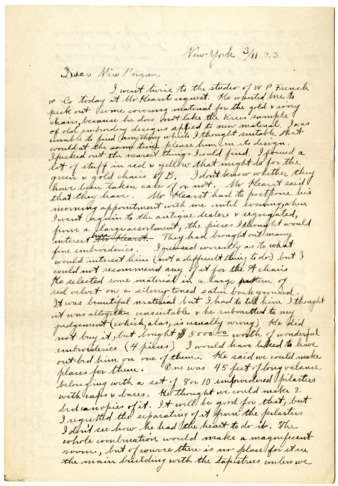 New York 3/11 23
Dear Miss Morgan
I went twice to the studio of W P French
& Co today at Mr Hearst request. He wanted me to
pick out some covering material for the gold & ivory
chairs, because he does not like the Kress samples
of old embroidery designs applied to new material. I was
unable to find anything which I thought suitable that
would at the same time please him in its design.
I picked out the nearest things I could find. I found a
lot of stuff in red & yellow that might do for the
green & gold chairs of B. I don't know whether they
have been taken care of or not. Mr Hearst said
that they have. Mr Hearst had to postpone his
morning appointment with me until evening, when
I went again to the antique dealers & segregated,
from a large assortment, the pieces I thought would
interest Mr Hearst. They had brought out many
fine embroideries. I guessed correctly as to what
would interest him (not a difficult thing to do) but I
could not recommend any of it for the chairs
He selected some material in a large pattern of
red velvet on a silvery toned satin background.
It was beautiful material but I had to tell him I thought
it was altogether unsuitable & he submitted to my
judgement (which, alas, is usually wrong). He did
not buy it but bought $5000 worth of wonderful
embroideries (4 pieces). I would have liked to have
out bid him on one of them. He said we could make
places for them. One was 45 feet of long valance
belonging with a set of 8 or 10 embroidered pilasters
with caps & bases. He thought we could make 2
bed canopies of it. It will be good for that, but
I regretted the separating of it from the pilasters
I don't see how he had the heart to do it. The
whole combination would make a magnificent
room, but of course there is no place for it are
the main building with the tapestries unless we